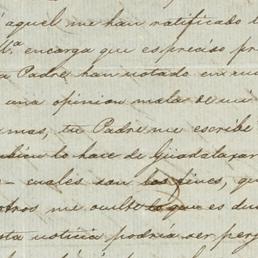 aquel me han ratificado l
V.a encarga que es preciso pr
a Padre han notado en su
una opinion mala de su
amas, tu Padre me escribe
bien lo hace de Guadalaxar
cuales son los fines, qu
otros me oculte lo que es du
sta noticia podria ser perj